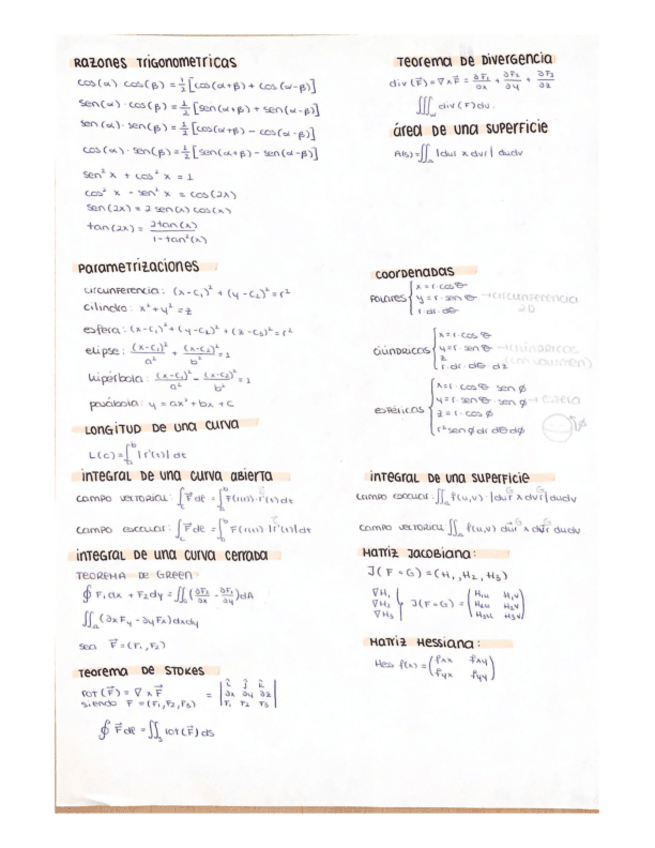 Razones Trigonometricas
cos(α) · cos(β) = 1/2 [cos(α+β) + cos(α-β)]
sen(α) · cos(β) = 1/2 [sen(α+β) + sen(α-β)]
sen(α) · sen(β) = 1/2 [cos(α+β) - cos(α-β)]
cos(α) · sen(β) = 1/2 [sen(α+β) - sen(α-β)]
sen² x + cos² x = 1
cos² x - sen² x = cos(2x)
sen(2x) = 2 sen(x) cos(x)
tan(2x) = 2tan(x) / 1-tan²(x)
Parametrizaciones
circunferencia: (x-c₁)² + (y-c₂)² = r²
cilindro: x² + y² = z
esfera: (x-c₁)² + (y-c₂)² + (z-c₃)² = r²
elipse: (x-c₁)²/a² + (x-c₂)²/b² = 1
hipérbola: (x-c₁)²/a² - (x-c₂)²/b² = 1
parábola: y = ax² + bx + c
Longitud de una curva
L(c) = ∫ₐᵇ |r'(t)| dt
integral de una curva abierta
campo vectorial: ∫ F⃗ dℓ = ∫ₐᵇ F(r(t)) · r'(t) dt
campo escalar: ∫ F⃗ dℓ = ∫ₐᵇ F(r(t)) · |r'(t)| dt
integral de una curva cerrada
TEOREMA DE GREEN
∮ F₁ dx + F₂ dy = ∬ (∂F₂/∂x - ∂F₁/∂y) dA
∬ (∂x Fy - ∂y Fx) dxdy
sea F⃗ = (F₁, F₂)
Teorema de Stokes
rot (F⃗) = ∇ x F⃗ = | î ĵ k̂ |
siendo F = (F₁, F₂, F₃) | ∂x ∂y ∂z |
| F₁ F₂ F₃ |
∮ F⃗ dℓ = ∬ rot (F⃗) ds
Teorema de Divergencia
div (F⃗) = ∇ x F⃗ = ∂F₁/∂x + ∂F₂/∂y + ∂F₃/∂z
∭ div (F) dv.
área de una superficie
A(s) = ∬ |dur x dvr| dudv
coordenadas
Polares { x = r · cos θ
y = r · sen θ → circunferencia 2D
r · dr · dθ
Cilíndricos { x = r · cos θ
y = r · sen θ → cilíndricos
z (con volumen)
r · dr · dθ · dz
esféricas { x = r · cos θ · sen ø
y = r · sen θ · sen ø → esfera
z = r · cos ø
r² sen ø dr dθ dø
integral de una superficie
campo escalar: ∬ f(u,v) · |dur x dvr| dudv
campo vectorial ∬ f(u,v) dur x dvr dudv
Matriz Jacobiana:
J (F∘G) = (H₁, H₂, H₃)
∇H₁
∇H₂ J(F∘G) = (H₁u H₁v
∇H₃ H₂u H₂v
H₃u H₃v)
Matriz Hessiana:
Hess f(x) = (fxx fxy
fyx fyy)